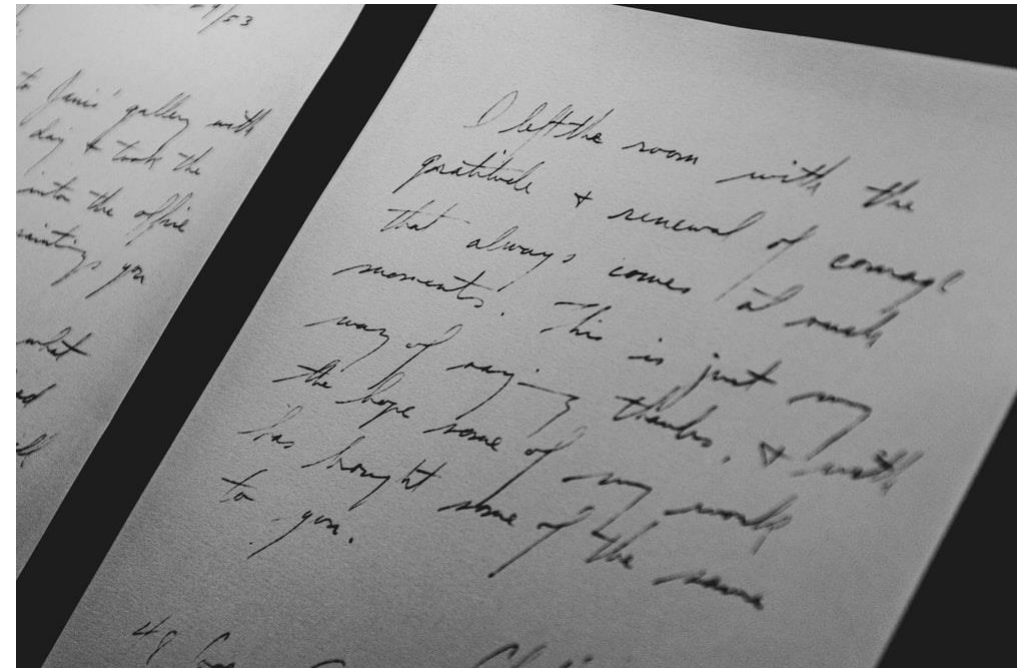 /53
to Janis' gallery with
day & took the
into the office
paintings you
what
ed
I left the room with the
gratitude & renewal of courage
that always comes at such
moments. This is just my
way of saying thanks, & with
the hope some of my work
has brought some of the same
to you.
48